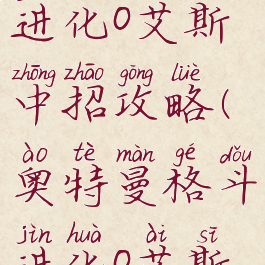 进化0艾斯
zhōng zhāo gōng lüè
中招攻略(
ào tè màn gé dǒu
奥特曼格斗
jìn huà ài sī
进化0艾斯